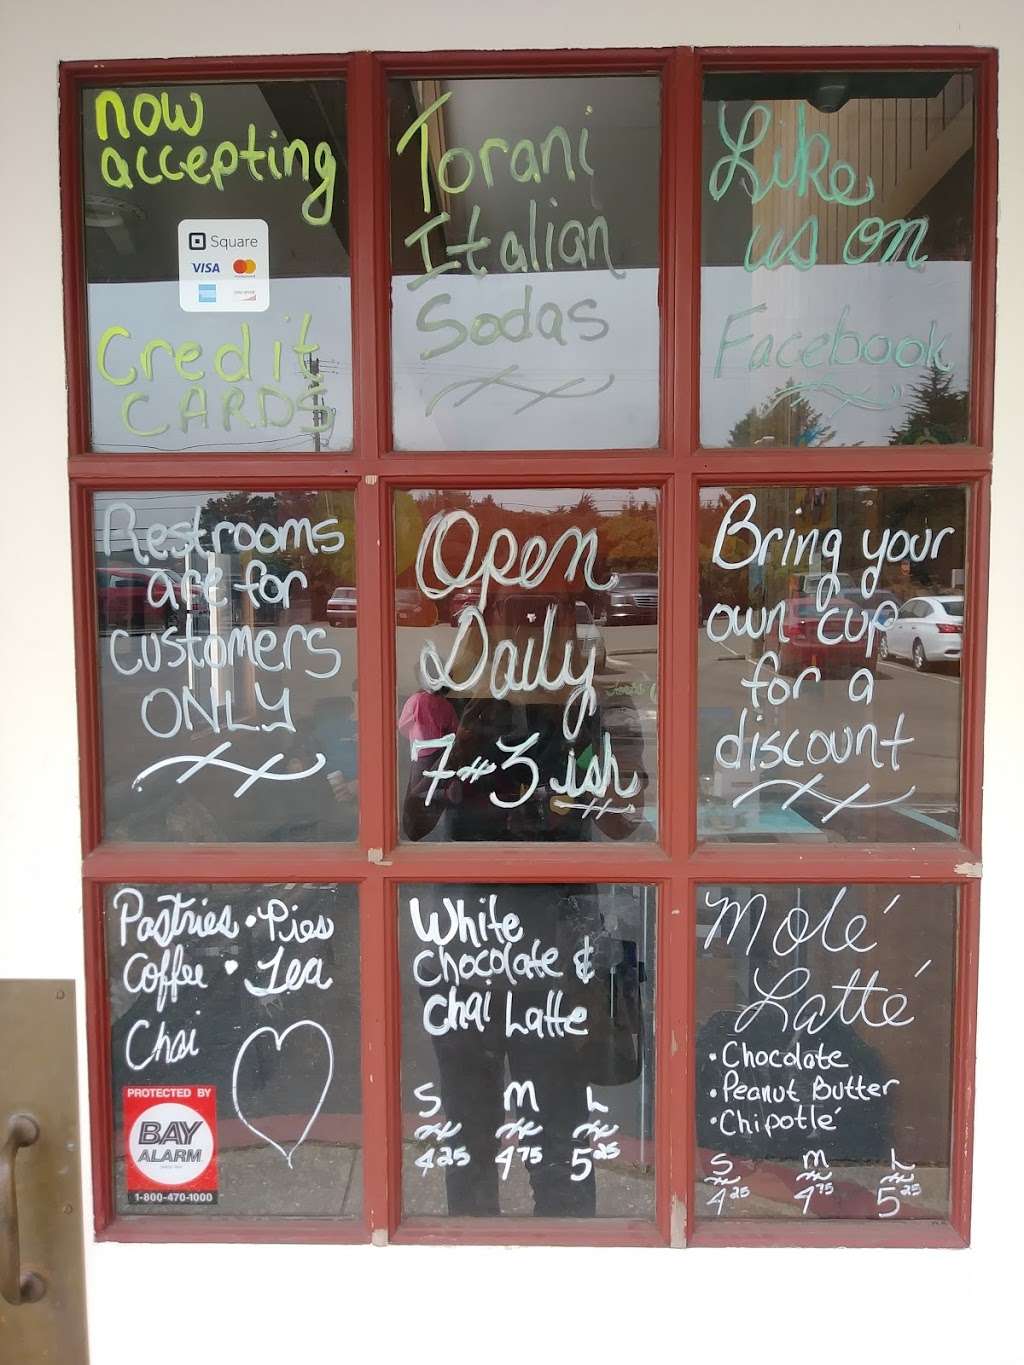 now
accepting
Square
VISA
Credit
CARDS
Torani
Italian
Sodas
Like
us on
Facebook
Restrooms
are for
customers
ONLY
Open
Daily
7-3ish
Bring your
own cup
for a
discount
Pastries • Pies
Coffee • Tea
Chai
PROTECTED BY
BAY
ALARM
1-800-470-1000
White
Chocolate &
Chai Latte
S M L
4.25 4.75 5.25
Molé
Latté
• Chocolate
• Peanut Butter
• Chipotlé
S M L
4.25 4.75 5.25